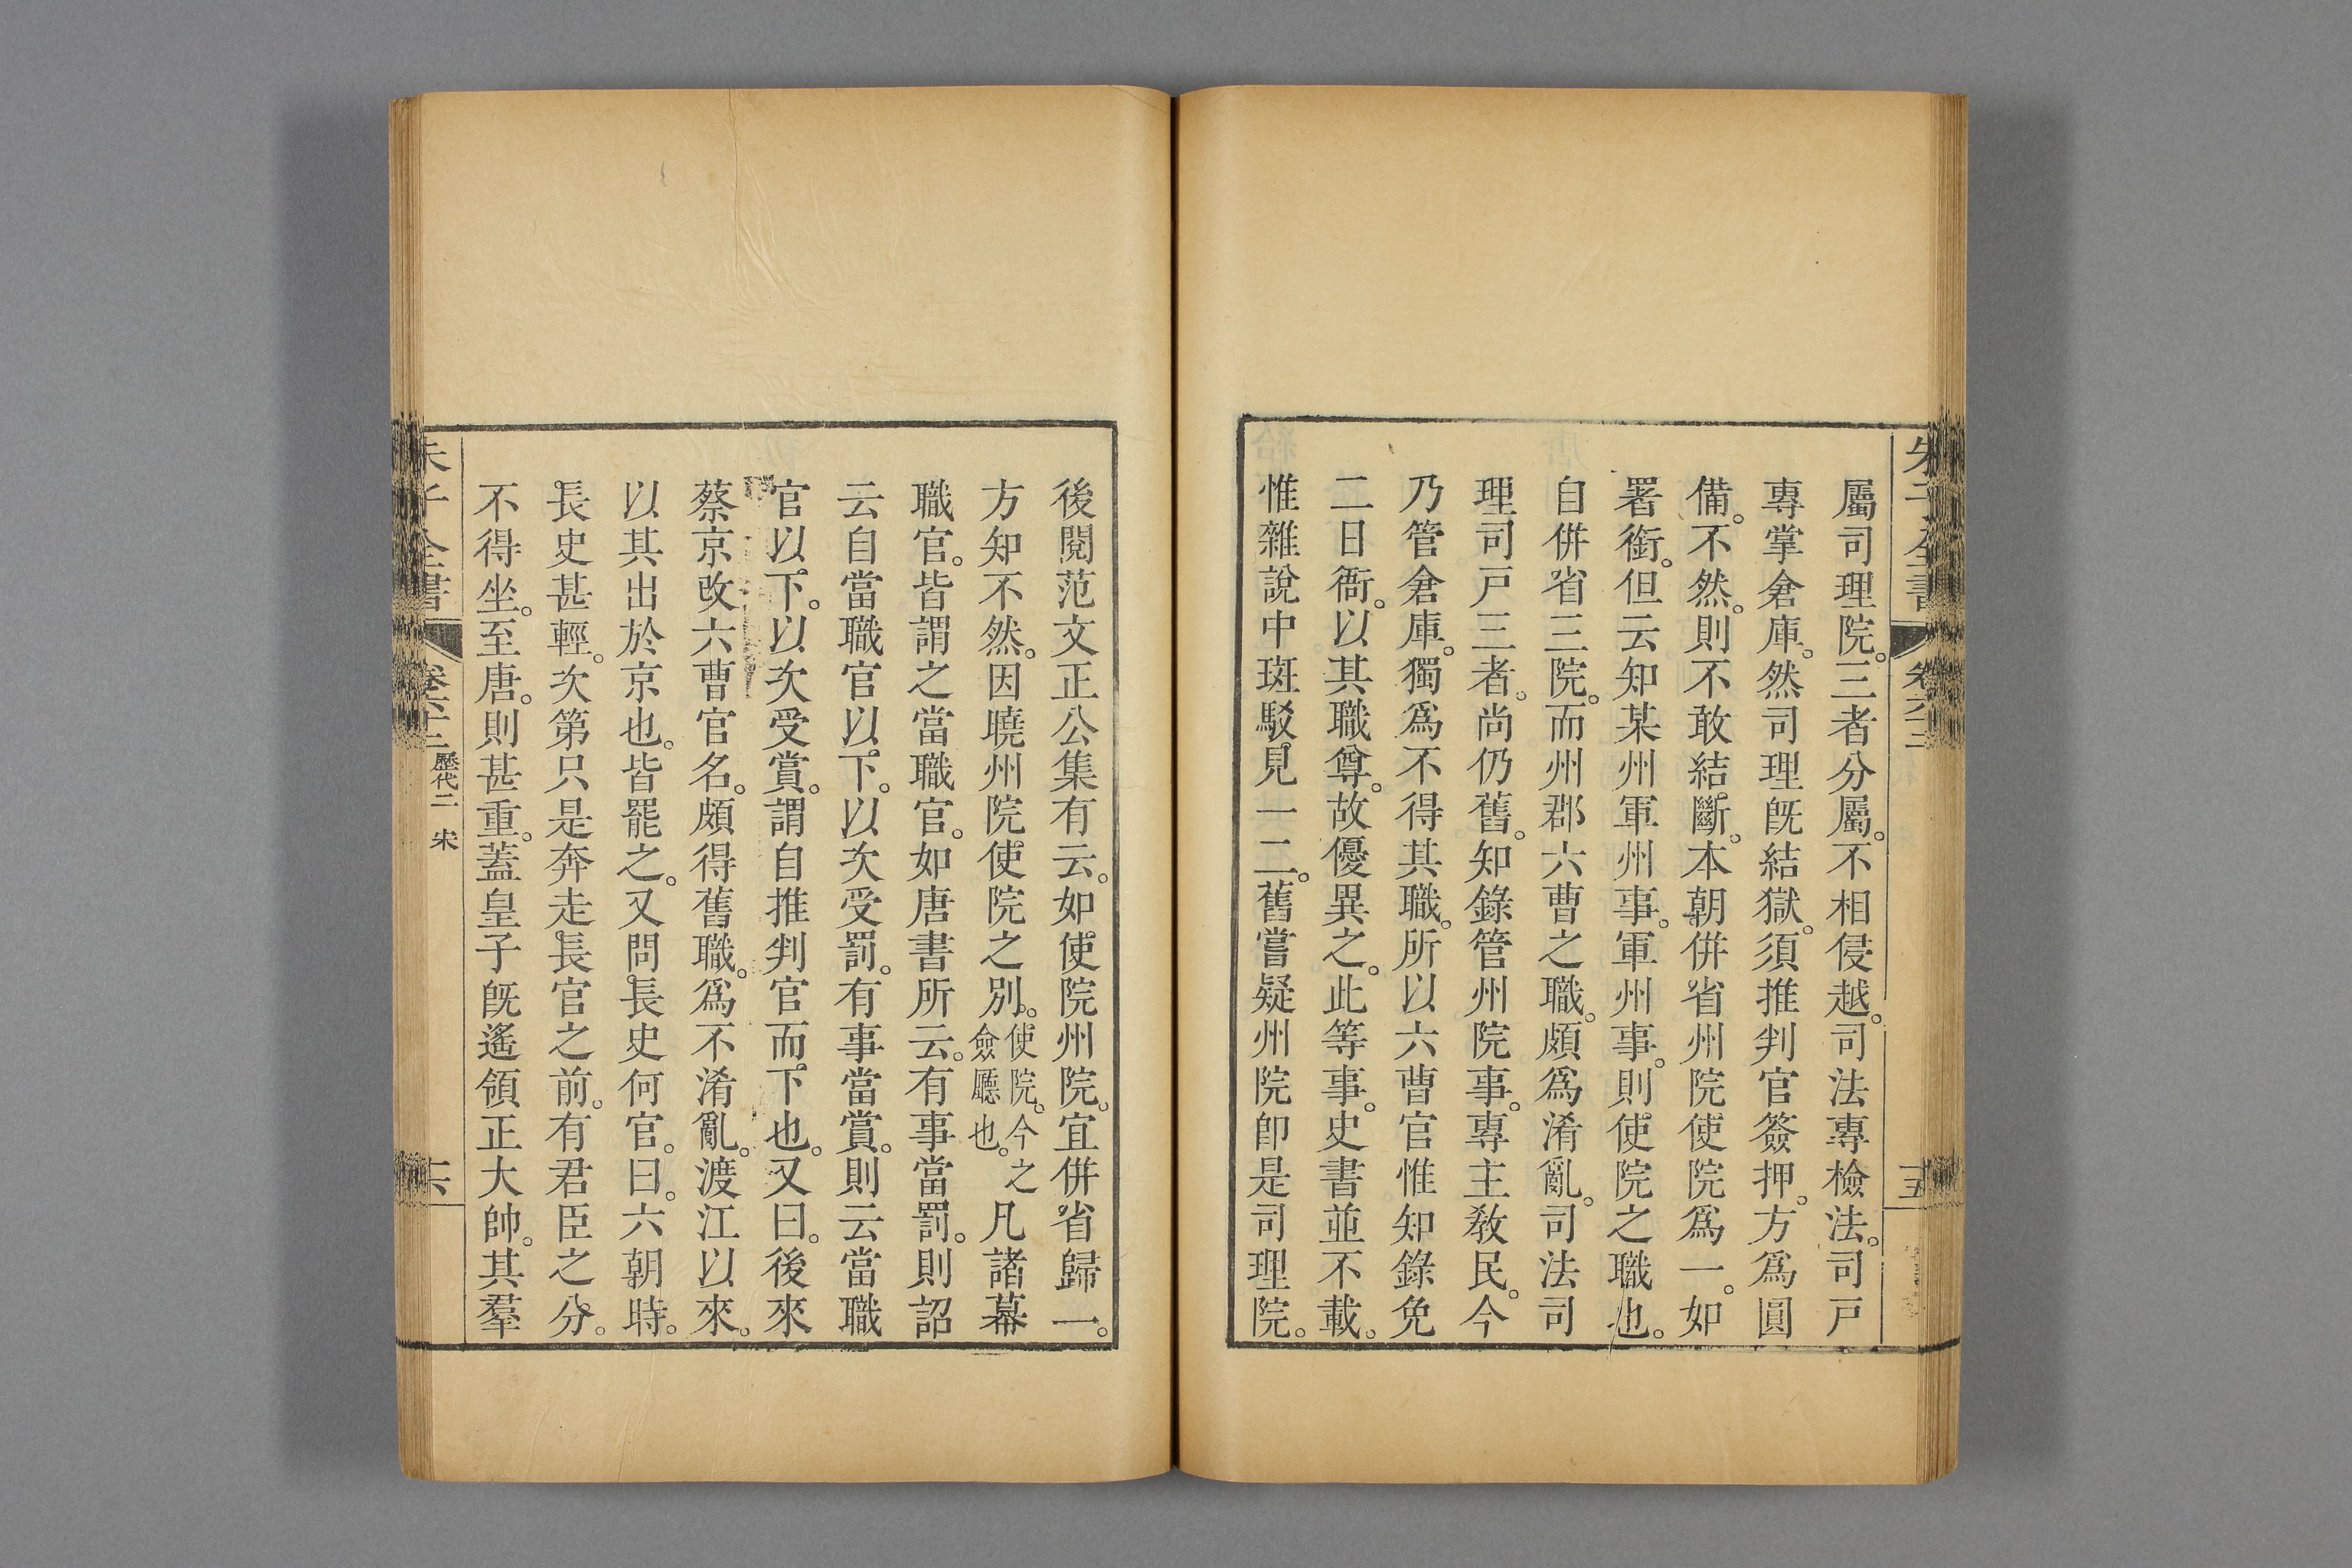 屬司理院。三者分屬。不相侵越。司法專檢法。司戸
專掌倉庫。然司理旣結獄。須推判官簽押。方爲圓
備。不然。則不敢結斷。本朝併省州院使院爲一。如
署銜。但云知某州軍州事。軍州事。則使院之職也。
自併省三院。而州郡六曹之職。頗爲淆亂。司法司
理司戸三者。尚仍舊。知錄管州院事。專主敎民。今
乃管倉庫。獨爲不得其職。所以六曹官惟知錄免
二日衙。以其職尊。故優異之。此等事。史書並不載。
惟雜說中斑駁見一二。舊嘗疑州院卽是司理院。
朱子全書 卷六十三
十五
後閱范文正公集有云。如使院州院。宜併省歸一。
方知不然。因曉州院使院之別。使院。今之僉廳也。凡諸幕
職官。皆謂之當職官。如唐書所云。有事當罰。則詔
云自當職官以下。以次受罰。有事當賞。則云當職
官以下。以次受賞。謂自推判官而下也。又曰。後來
蔡京改六曹官名。頗得舊職。爲不淆亂。渡江以來。
以其出於京也。皆罷之。又問長史何官。曰。六朝時。
長史甚輕。次第只是奔走長官之前。有君臣之分。
不得坐。至唐。則甚重。蓋皇子旣遙領正大帥。其羣
朱子全書 卷六十三 歷代二 宋
十六